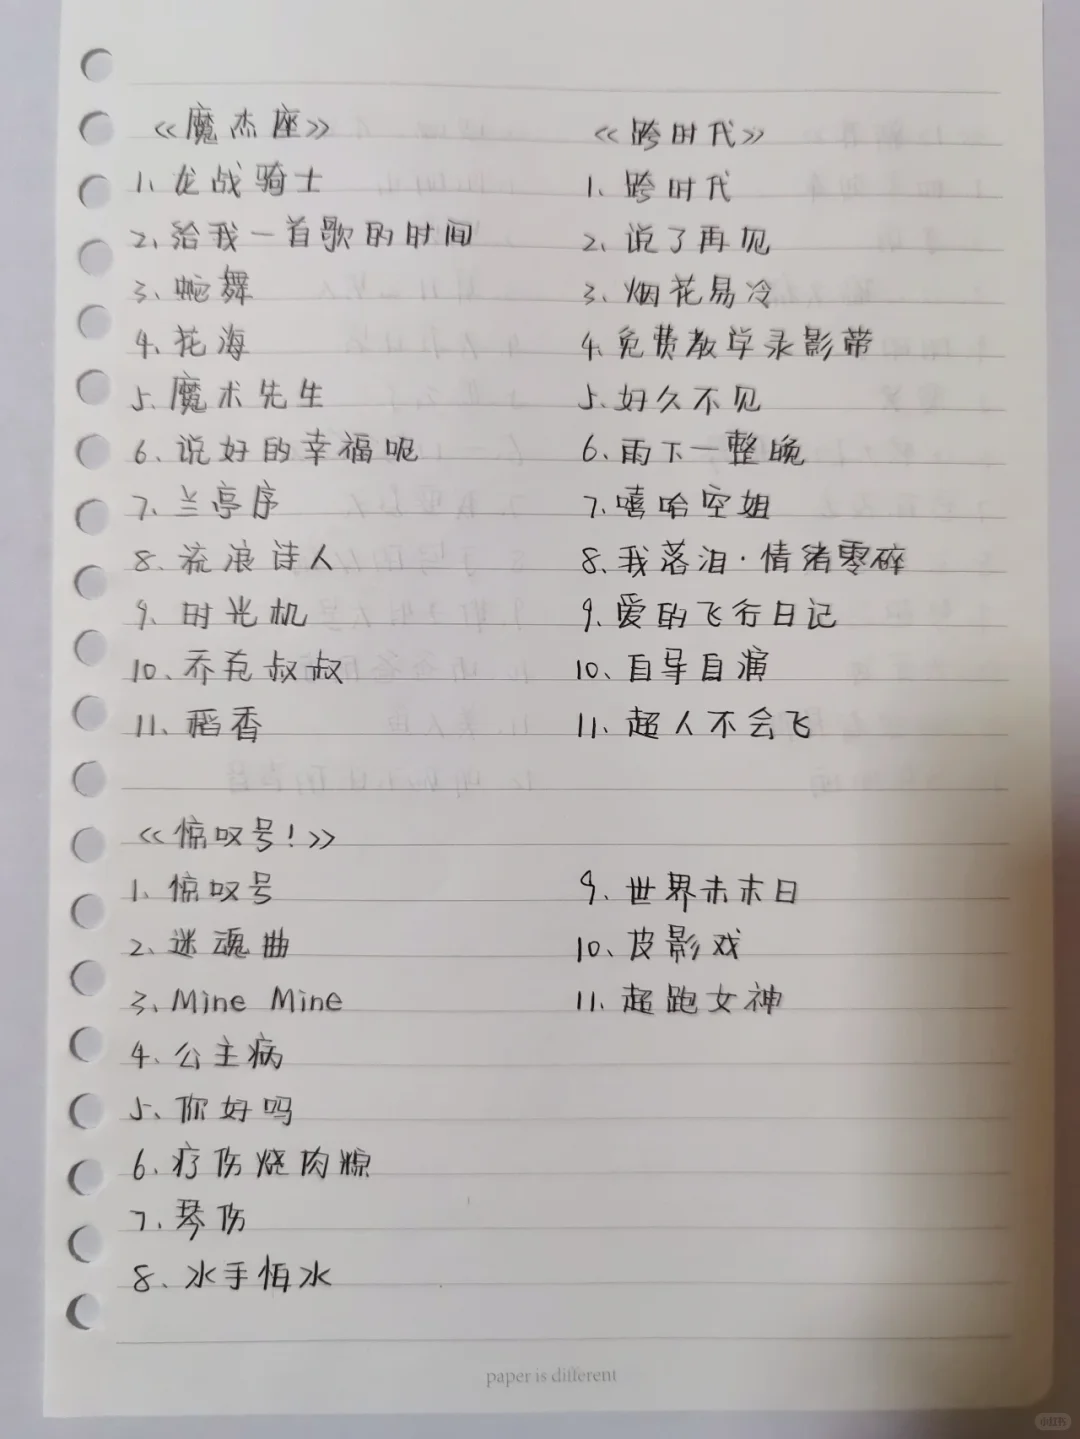 《魔杰座》
1、龙战骑士
2、给我一首歌的时间
3、蛇舞
4、花海
5、魔术先生
6、说好的幸福呢
7、兰亭序
8、流浪诗人
9、时光机
10、乔克叔叔
11、稻香
《跨时代》
1、跨时代
2、说了再见
3、烟花易冷
4、免费教学录影带
5、好久不见
6、雨下一整晚
7、嘻哈空姐
8、我落泪·情绪零碎
9、爱的飞行日记
10、自导自演
11、超人不会飞
《惊叹号!》
1、惊叹号
2、迷魂曲
3、Mine Mine
4、公主病
5、你好吗
6、疗伤烧肉粽
7、琴伤
8、水手怕水
9、世界未末日
10、皮影戏
11、超跑女神
paper is different
小红书